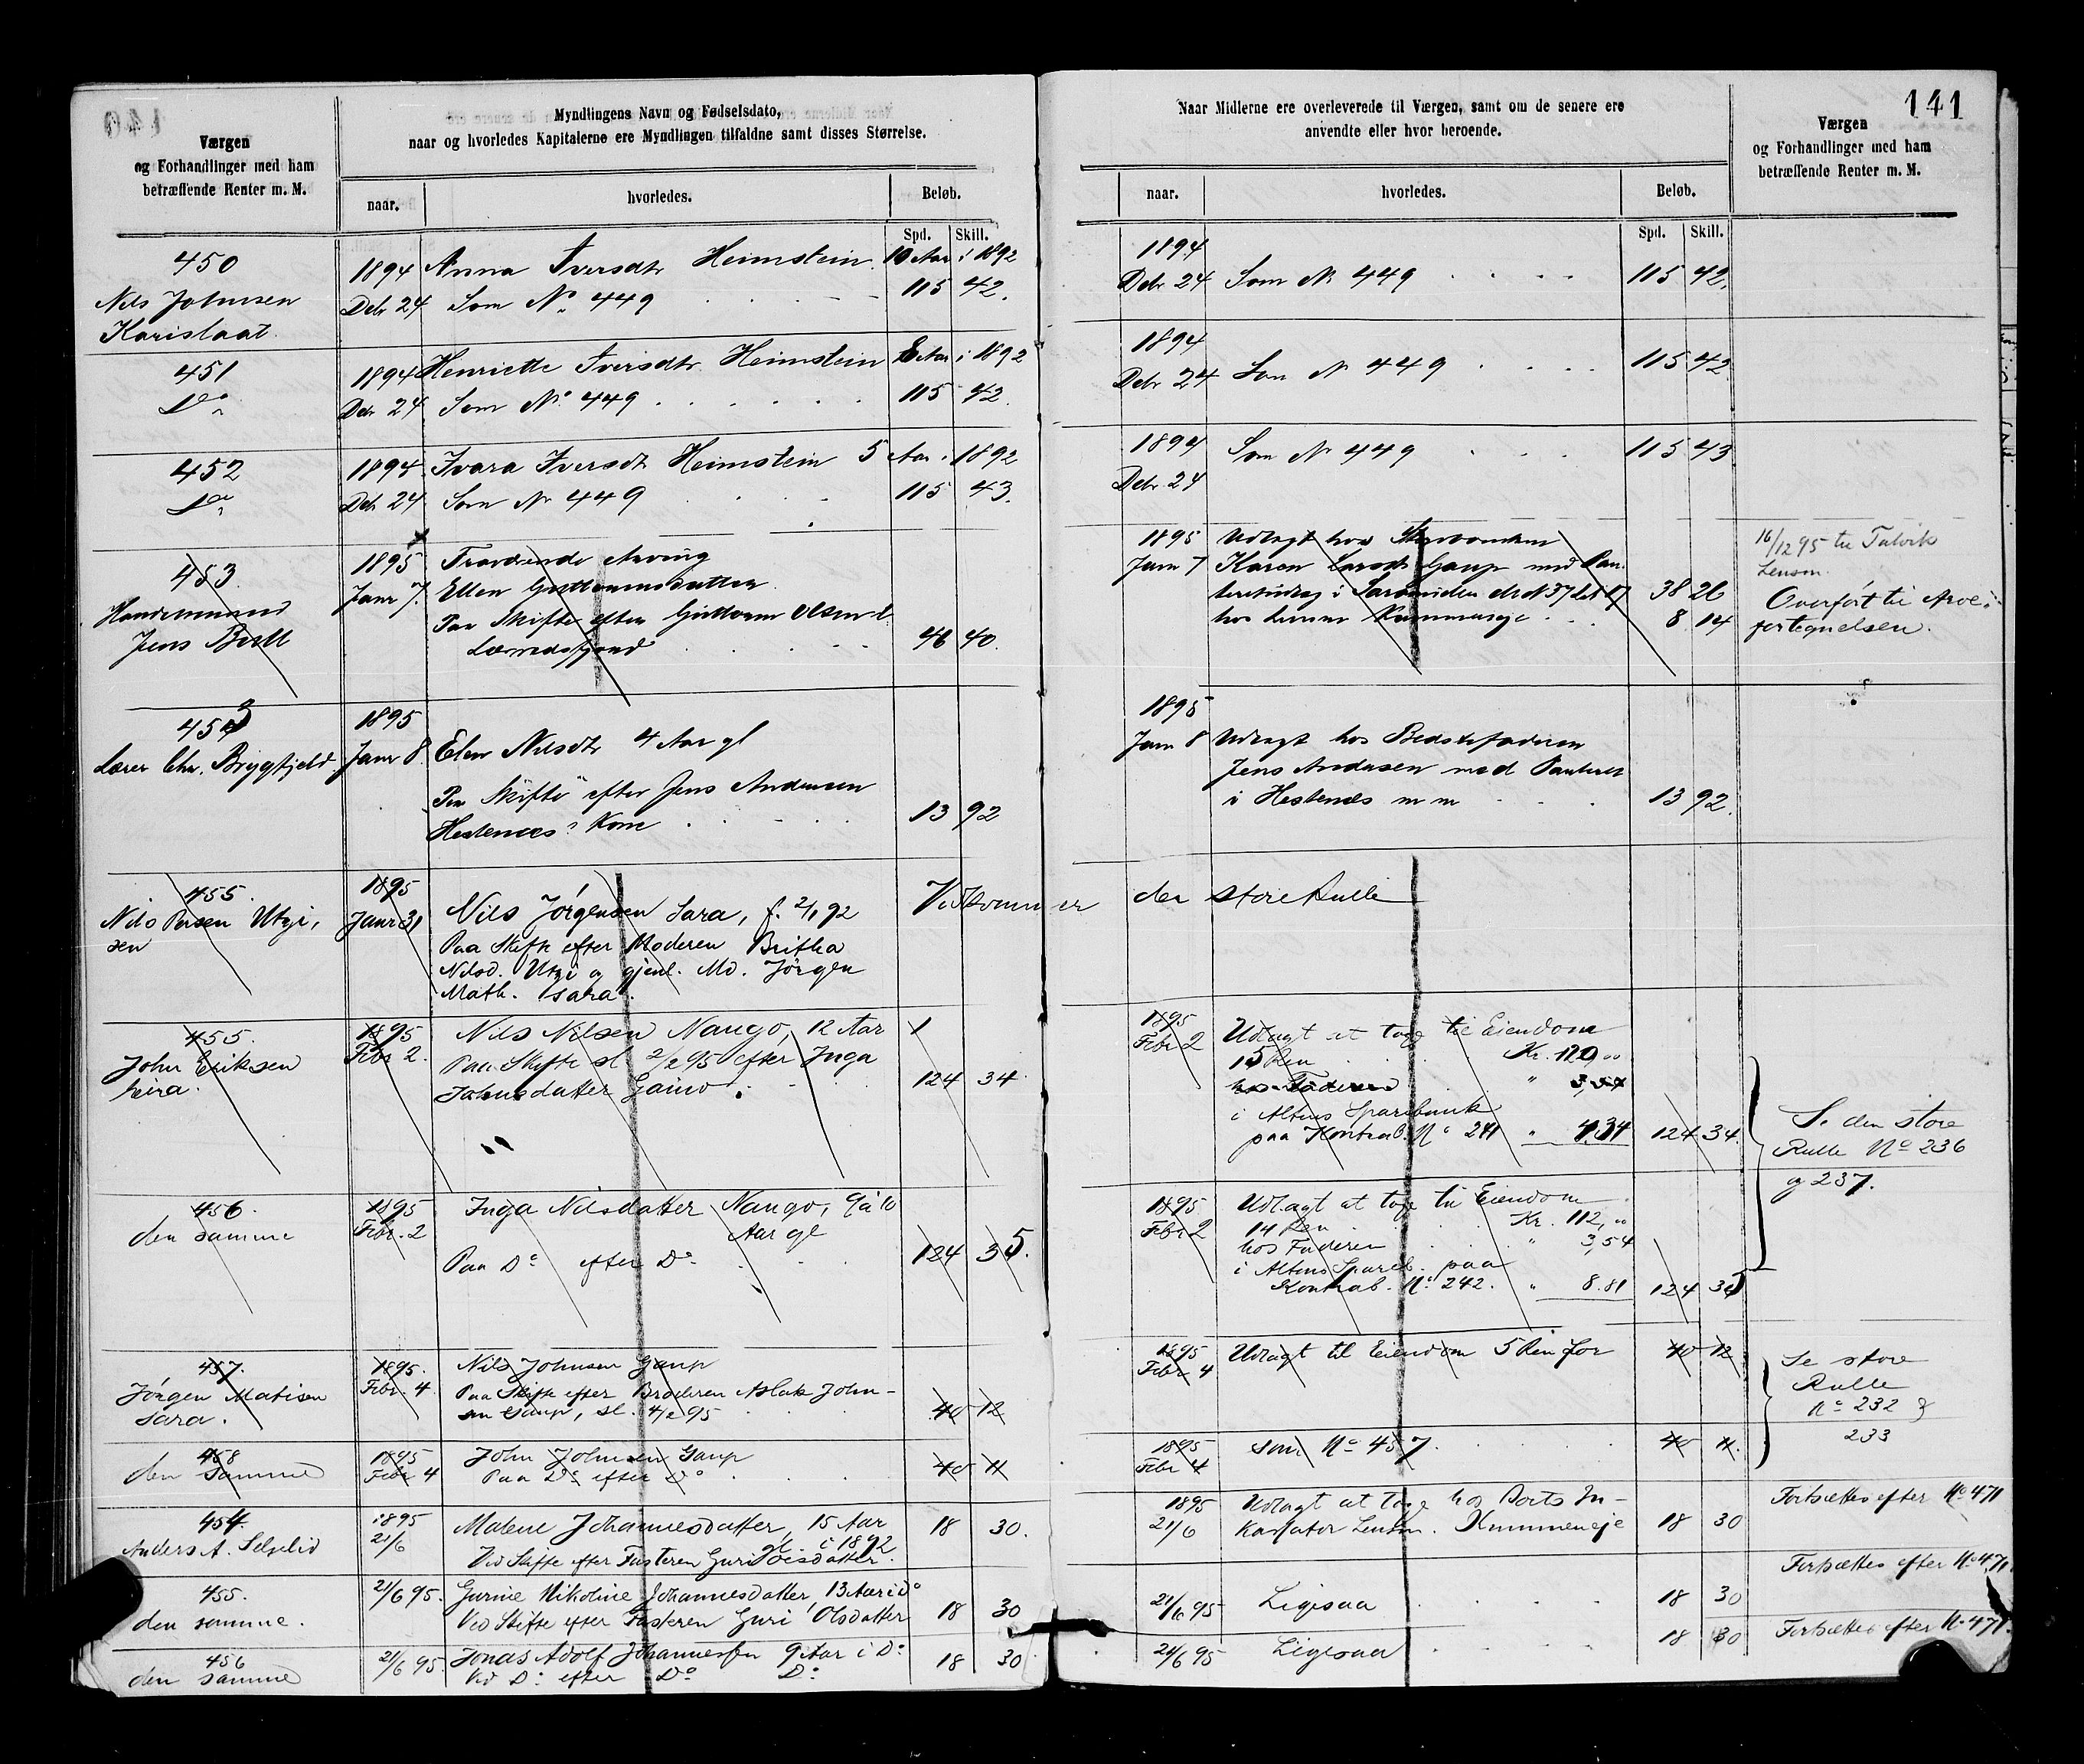 Værgen
og Forhandlinger med ham
betræffende Renter m. M.
Myndlingens Navn og Fødselsdato,
naar og hvorledes Kapitalerne ere Myndlingen tilfaldne samt disses Størrelse.
naar.
hvorledes.
Beløb.
Spd. Skill.
450
Nils Johnsen
Karislaat
1894 Anna Iversdtr Heimstein. 10 Aar i 1892
Debr 24 Som No 449 115 42.
451
Do
1894 Henriette Iversdtr Heimstein 8 Aar i 1892
Debr 24 Som No 449 115 42.
452
Do
1894 Ivara Iversdtr Heimstein 5 Aar i 1892
Debr 24 Som Nr 449 115 43.
453
Handelsmand
Jens Bull
1895 Fraværende Arving
Janr 7. Ellen Guttormsdatter
Paa Skifte efter Guttorm Olsen
46 40.
453
Lærer Chr. Bryggfjeld
1895
Janr 8 Elen Nilsdtr 4 Aar gl
Paa Skifte efter Jens Andersen
Hestenes Kone 13 92
455.
Nils Persen Utzi,
sen
1895
Janr 31 Nils Jørgensen Sara, f. 2/1 92 Vedkommer
Paa Skifte efter Moderen Britha
Nilsd. Utzi og gjenl. Md. Jørgen
Math. Sara.
455.
John Eriksen
hira.
1895 Nils Nilsen Nango, 12 Aar
Febr 2. Paa Skifte sl. 2/2 95 efter Inga
Johnsdatter Gaino 124 34
456.
den samme
1895 Inga Nilsdatter Nango, 9 à 10
Febr. 2 Aar gl
Paa Do efter Do 124 35.
457.
Jørgen Matisen
Sara.
1895. Nils Johnsen Gaup
Febr. 4 Paa Skifte efter Broderen Aslak John-
sen Gaup, sl. 4/2 95 40 12
458
den samme
1895 John Johnsen Gaup
Febr 4 Paa Do efter Do 40 11
454.
Anders A. Selgelid
1895 Malene Johannesdatter, 15 Aar 18 30.
21/6 gl. i 1892
Ved Skifte efter Fasteren Guri Olsdatter.
455.
den samme.
21/6 95. Gurine Nikoline Johannesdatter, 13 Aar i do
Ved Skifte efter Fasteren Guri Olsdatter 18 30
456
den samme
21/6 95 Jonas Adolf Johannessen 9 Aar i Do
Ved Do efter Do Do 18 30
141
Naar Midlerne ere overleverede til Værgen, samt om de senere ere
anvendte eller hvor beroende.
Værgen
og Forhandlinger med ham
betræffende Renter m. M.
naar.
hvorledes.
Beløb.
Spd. Skill.
1894
Debr 24 Som Nr 449 115 42.
1894
Debr 24 Som Nr 449 115 42
1894 Som Nr 449 115 43
Debr 24
1895 Udlagt hos
Janr 7 Karen Larsdtr Gaup med Pan-
38 26
hos Lensm Kummeneje 8 14
16/12 95 til Talvik
Lensm.
Overført til Arve-
fortegnelsen.
1895
Janr 8 Udlagt hos Bedstefaderen
Jens Andersen med Panteret
i Hestenes m m 13 92.
den store Rulle
1895 Udlagt at tage til Eiendom
Febr 2 15 Ren Kr. 120,00
hos Faderen
i Altens Sparebank
paa Kontrab. No 241 " 4.34 124 34.
Se den store
Rulle No 236
og 237.
1895 Udlagt at tage til Eiendom
Febr 2 14 Ren Kr. 112,00
hos Faderen " 3,54
i Altens Spareb. paa
Kontrab. No 242. " 8.81 124 35
1895 Udlagt til Eiendom 5 Ren for 40 12
Febr 4
Se store
Rulle
No 232 &
233
1895 som No 457. 40 11.
Febr 4
1895 Udlagt at tage hos Borts In-
21/6 kassator Lensm. Kummeneje 18 30
Fortsættes efter No 471
21/6 95 Ligesaa 18 30
Fortsættes efter No 471.
21/6 95 Ligesaa 18 30
Fortsættes efter No 471.